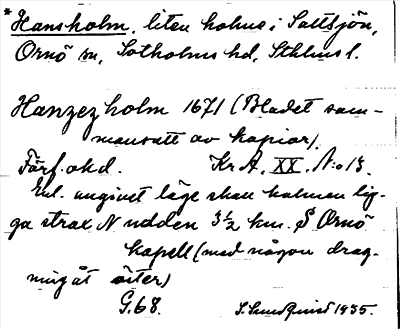 * Hansholm, liten holme i Saltsjön,
Ornö sn, Sotholms hd, Sthlms l.
Hanzezholm 1671 (Bladet sam-
mansatt av kopior).
Förf. okd. Kr A. XX. N:o 13.
Enl. angivet läge skall holmen lig-
ga strax N udden 3½ km. S Ornö
kapell (med någon drag-
ning åt öster)
G.68. S. Sundquist 1935.